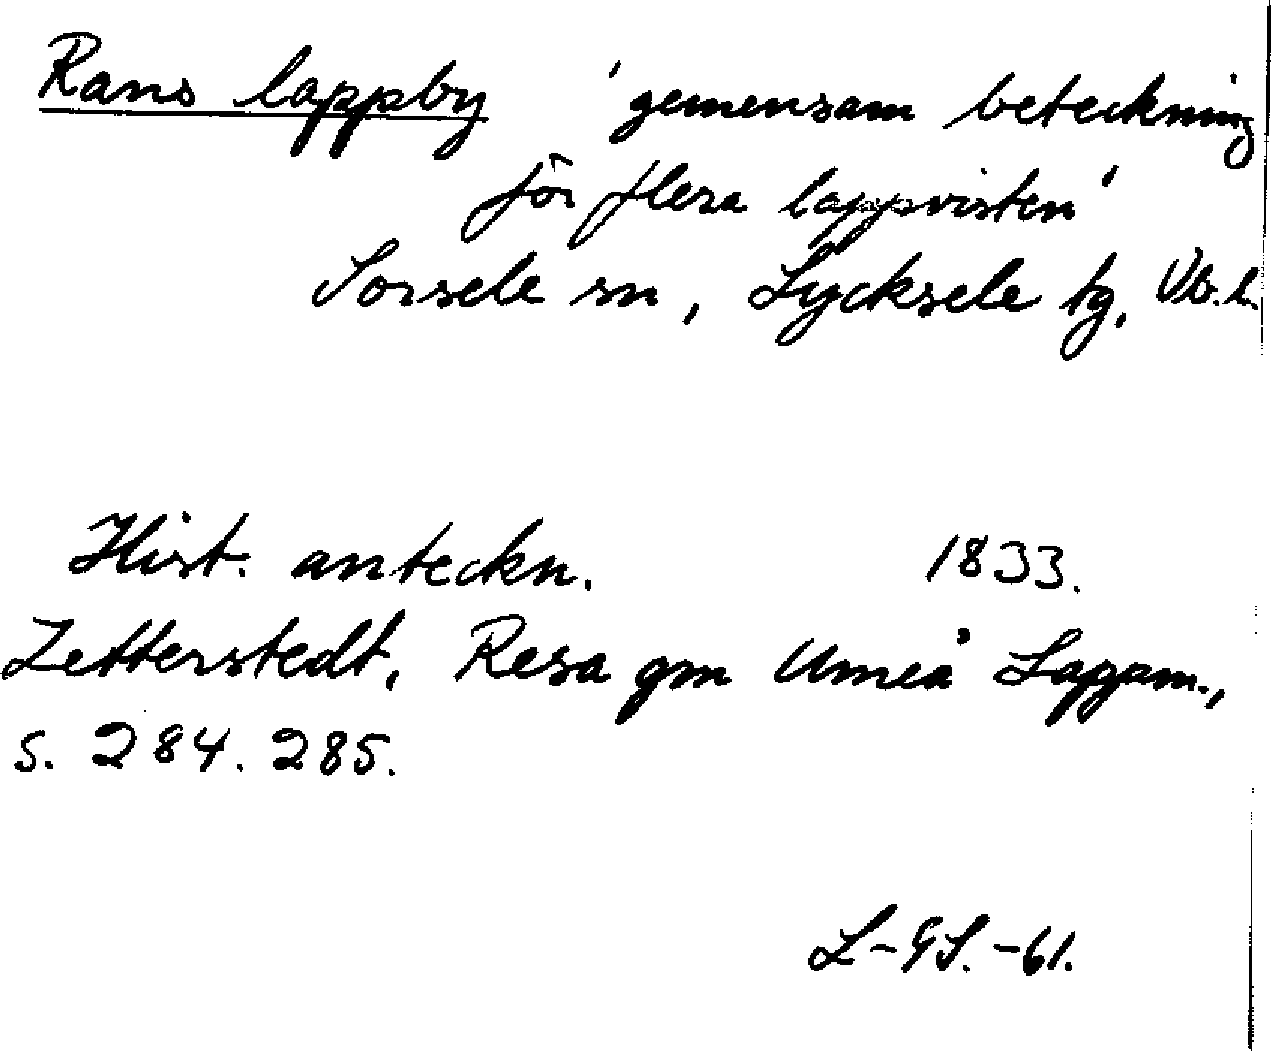 Rans lappby 'gemensam beteckning
för flera lappvisten'
Sorsele sn, Lycksele tg, Vb.l.
Hist. anteckn. 1833.
Zetterstedt, Resa gm Umeå Lappm.,
s. 284. 285.
L-GS.-61.